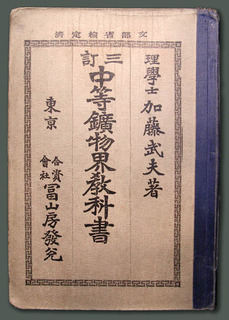 文部省檢定濟
理學士 加藤武夫著
三訂 中等鑛物界教科書
東京 合資會社 冨山房發兌